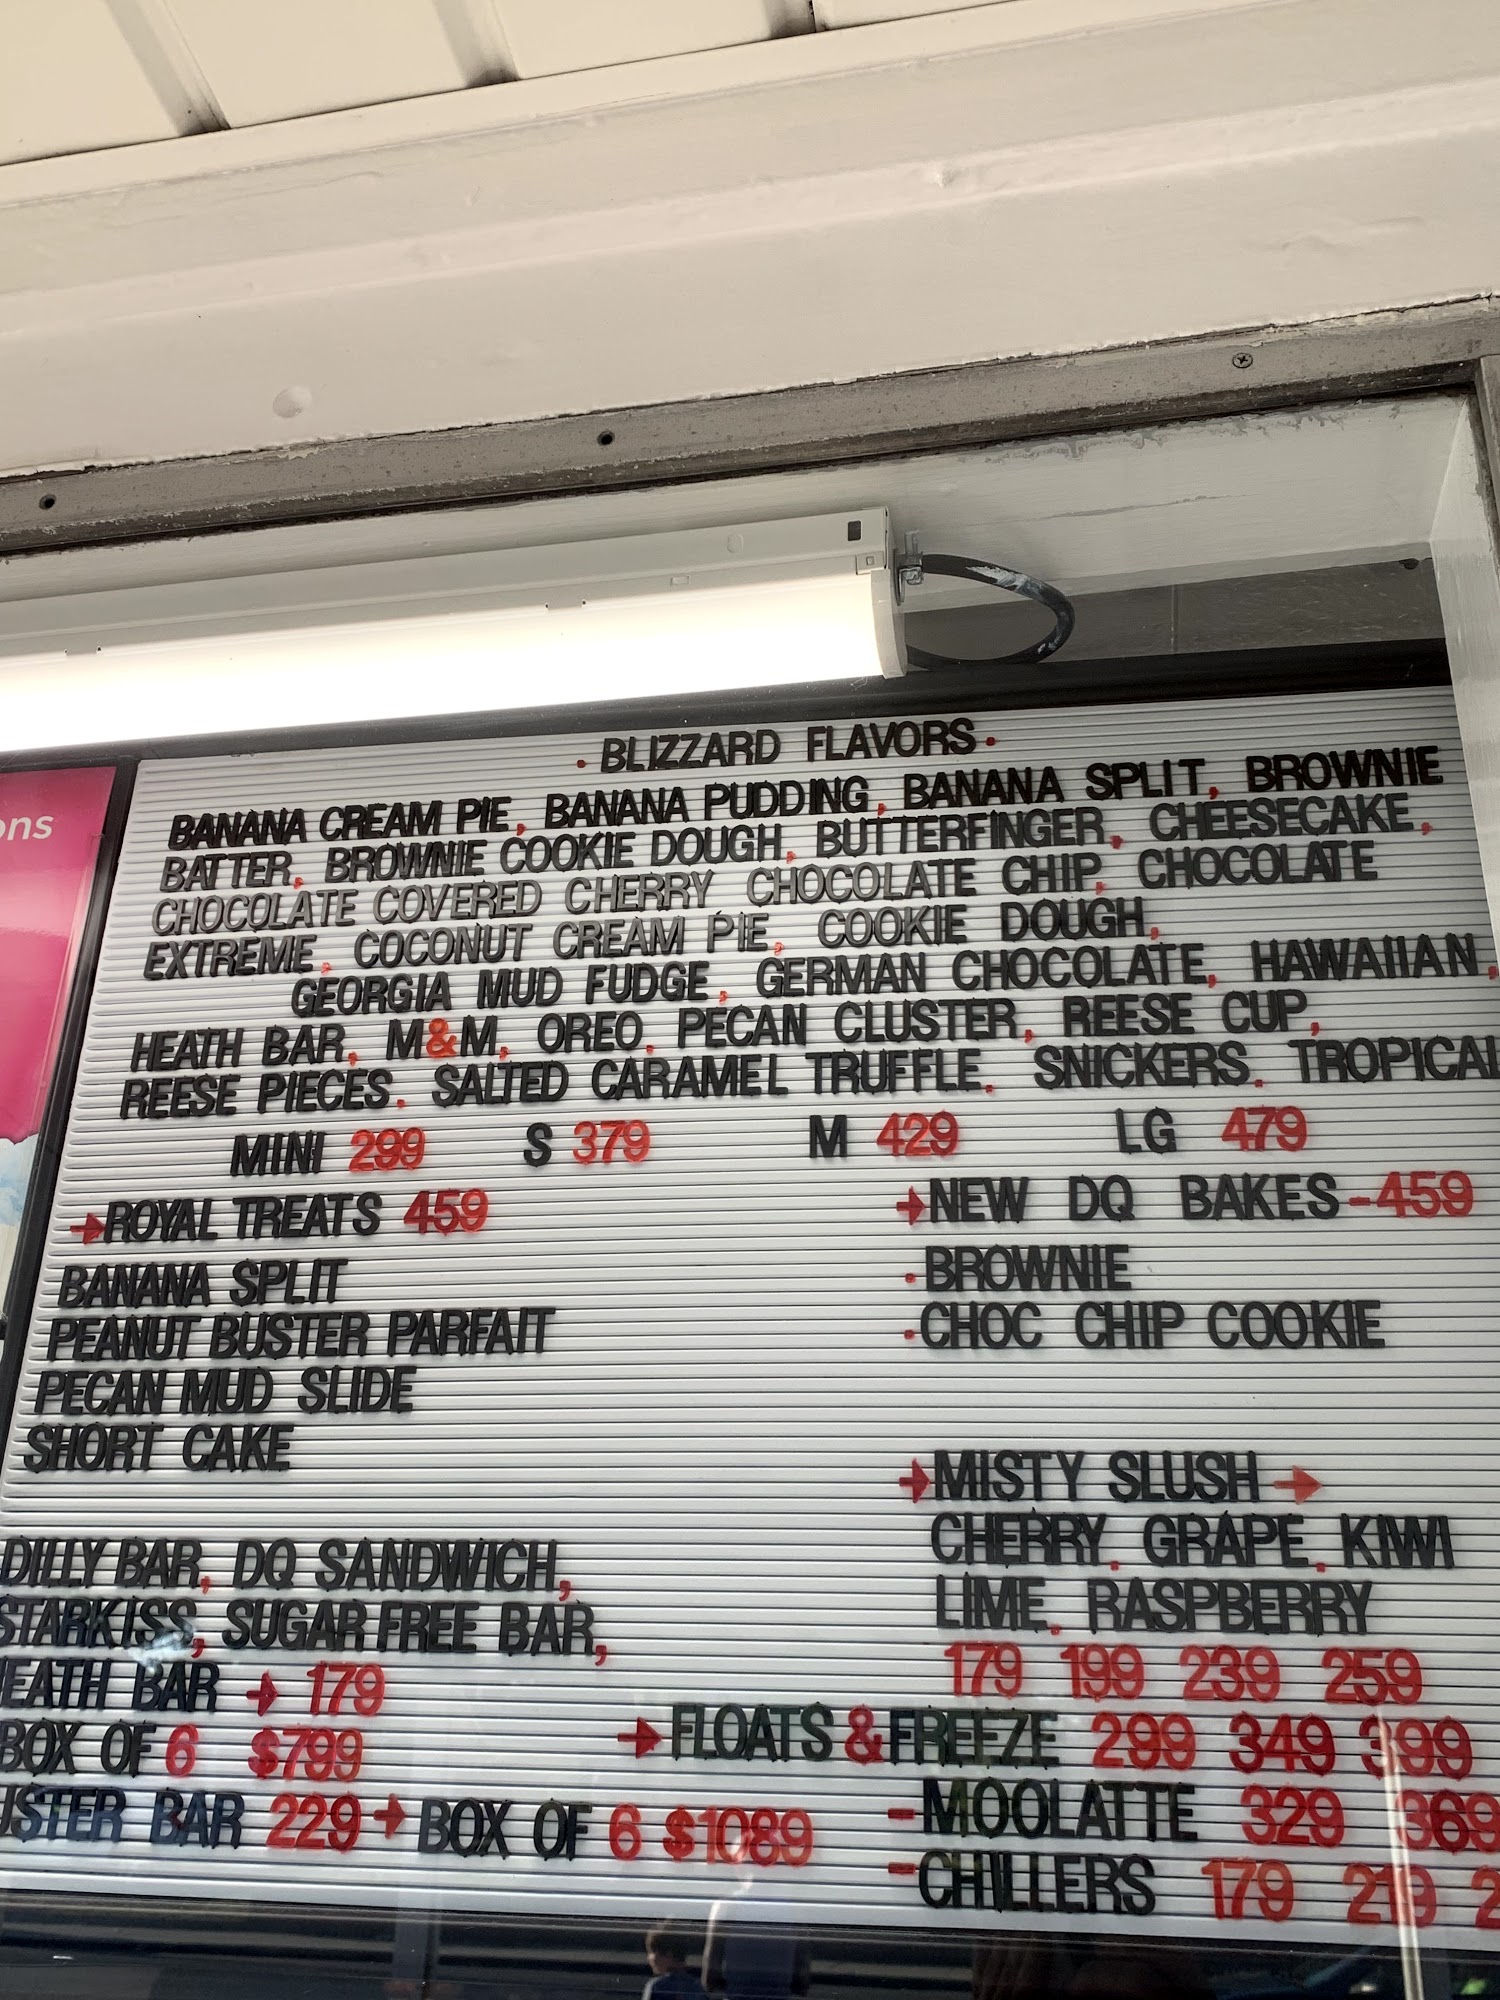 ons
• BLIZZARD FLAVORS •
BANANA CREAM PIE, BANANA PUDDING, BANANA SPLIT, BROWNIE
BATTER, BROWNIE COOKIE DOUGH, BUTTERFINGER, CHEESECAKE,
CHOCOLATE COVERED CHERRY CHOCOLATE CHIP, CHOCOLATE
EXTREME, COCONUT CREAM PIE, COOKIE DOUGH,
GEORGIA MUD FUDGE, GERMAN CHOCOLATE, HAWAIIAN,
HEATH BAR, M&M, OREO, PECAN CLUSTER, REESE CUP,
REESE PIECES, SALTED CARAMEL TRUFFLE, SNICKERS, TROPICAL
MINI 299 S 379 M 429 LG 479
→ROYAL TREATS 459
BANANA SPLIT
PEANUT BUSTER PARFAIT
PECAN MUD SLIDE
SHORT CAKE
→NEW DQ BAKES-459
•BROWNIE
•CHOC CHIP COOKIE
DILLY BAR, DQ SANDWICH,
STARKISS, SUGAR FREE BAR,
EATH BAR → 179
BOX OF 6 $799
USTER BAR 229 → BOX OF 6 $1089
→MISTY SLUSH→
CHERRY, GRAPE, KIWI
LIME, RASPBERRY
179 199 239 259
→FLOATS & FREEZE 299 349 399
-MOOLATTE 329 369
-CHILLERS 179 219 2